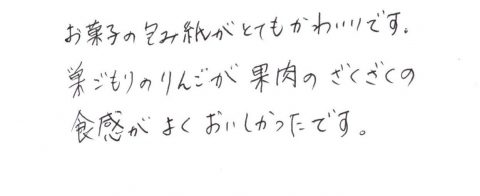 お菓子の包み紙がとてもかわいいです。
巣ごもりのりんごが果肉のざくざくの
食感がよくおいしかったです。